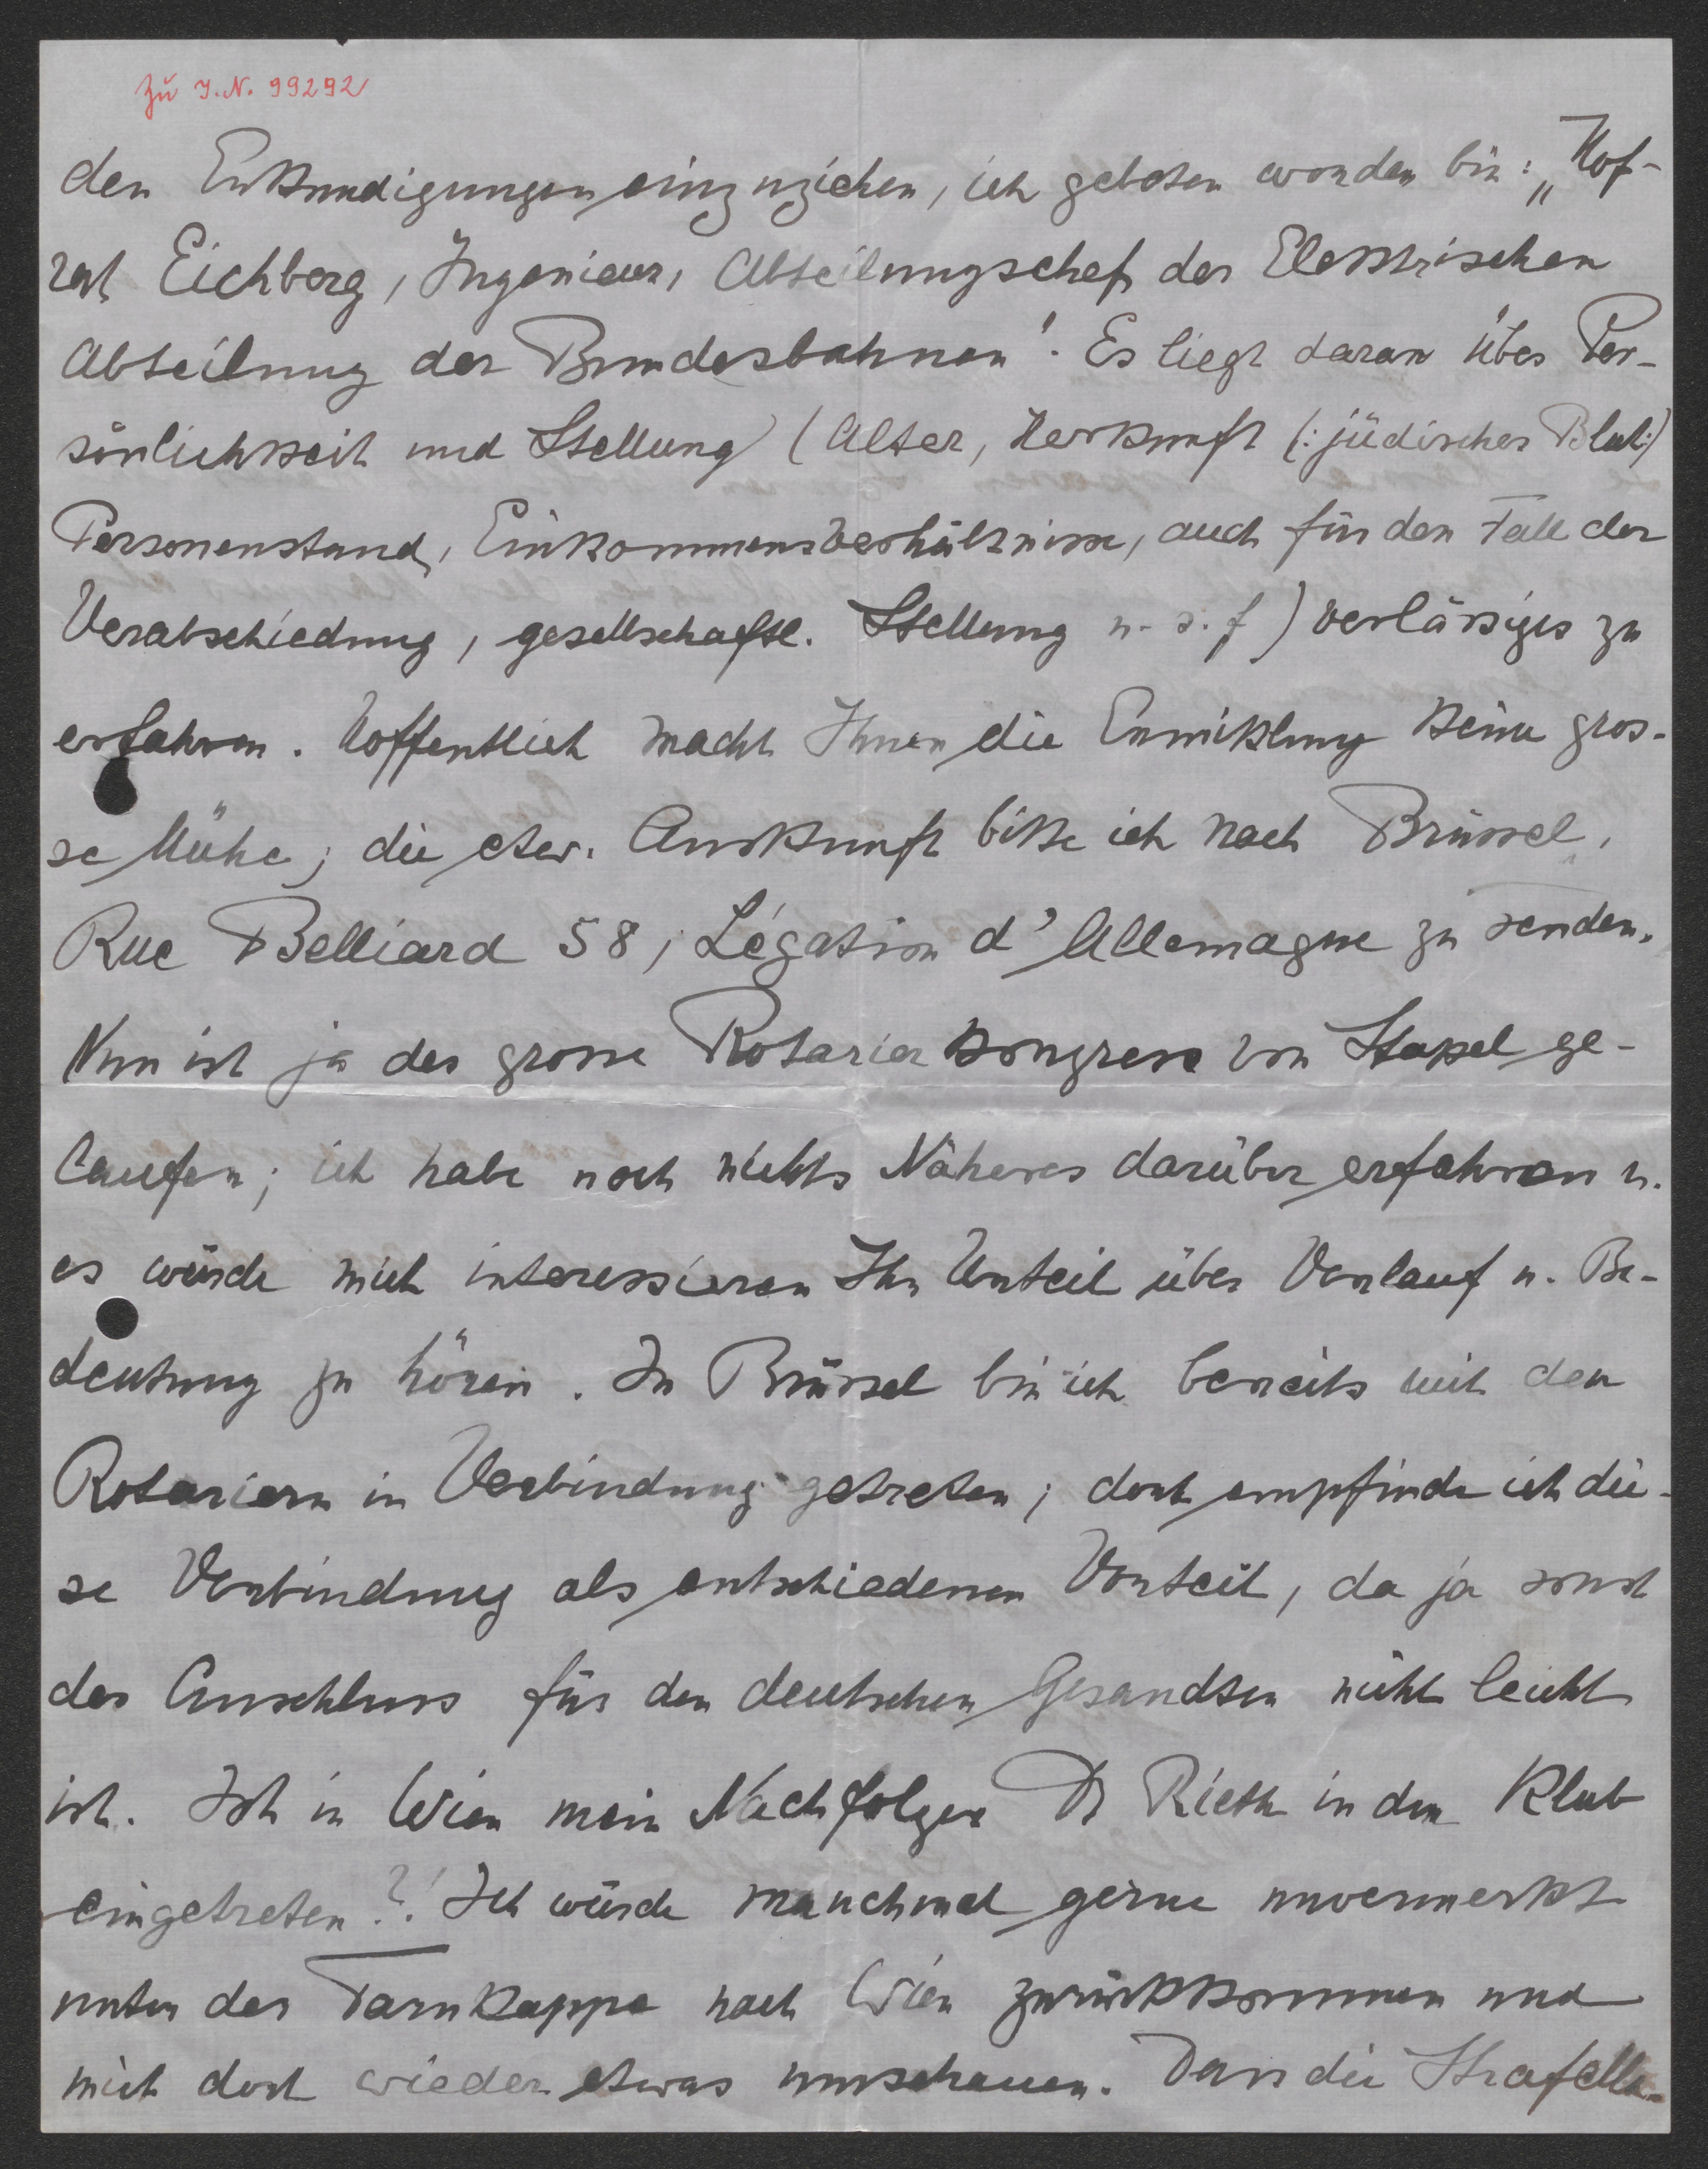 Zu I.N. 99292
den Erkundigungen einzuziehen, ich gebeten worden bin: „Hof-
rat Eichberg, Ingenieur, Abteilungschef der Elektrischen
Abteilung der Bundesbahnen". Es liegt daran über Per-
sönlichkeit und Stellung (Alter, Herkunft (: jüdisches Blut:)
Personenstand, Einkommensverhältnisse, auch für den Fall der
Verabschiedung, gesellschaftl. Stellung u. s. f) verlässiges zu
erfahren. Hoffentlich macht Ihnen die Ermittlung keine gros-
se Mühe; die etw. Auskunft bitte ich nach Brüssel,
Rue Belliard 58, Légation d'Allemagne zu senden.
Nun ist ja der grosse Rotarier Kongress von Stapel ge-
laufen; ich habe noch nichts Näheres darüber erfahren u.
es würde mich interessieren Ihr Urteil über Verlauf u. Be-
deutung zu hören. In Brüssel bin ich bereits mit den
Rotariern in Verbindung getreten; dort empfinde ich die-
se Verbindung als entschiedenen Vorteil, da ja sonst
der Anschluss für den deutschen Gesandten nicht leicht
ist. Ist in Wien mein Nachfolger Dr Rieth in den Klub
eingetreten?! Ich würde manchmal gerne unvermerkt
unter der Tarnkappe nach Wien zurückkommen und
mich dort wieder etwas umschauen. Dass die Strafella-